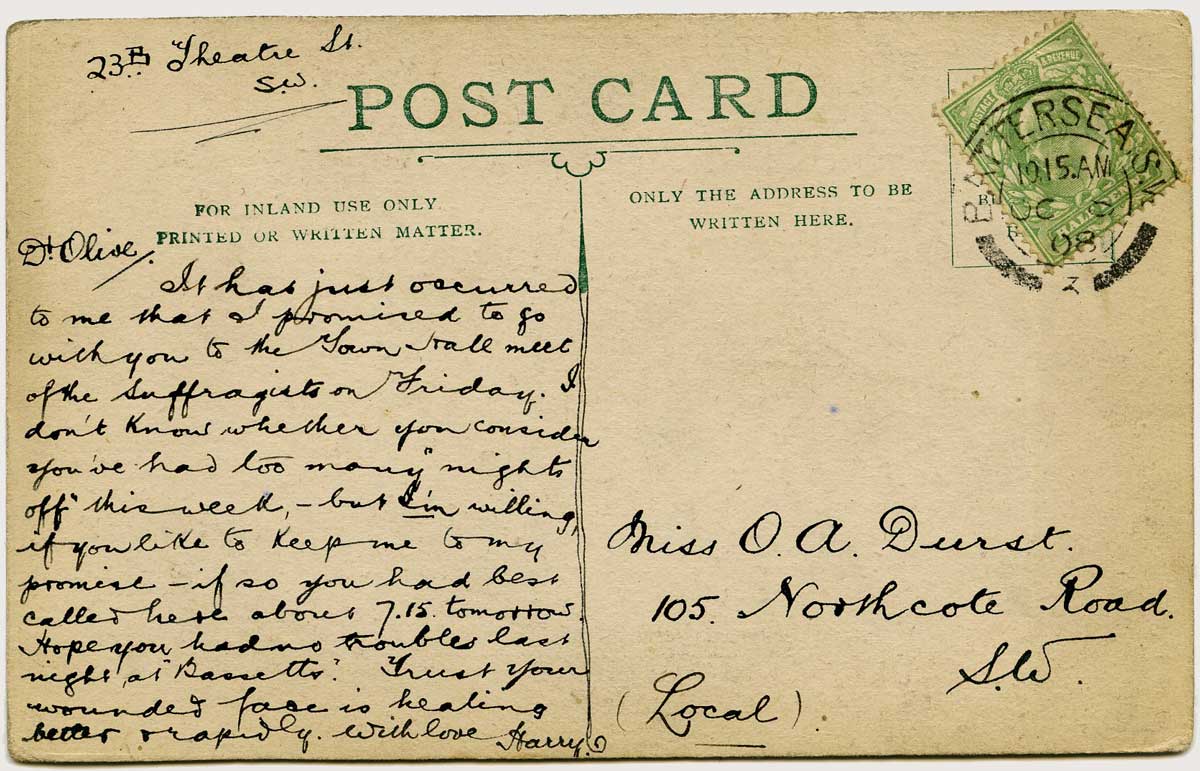 23B Theatre St.
S.W.
POST CARD
FOR INLAND USE ONLY
PRINTED OR WRITTEN MATTER.
ONLY THE ADDRESS TO BE
WRITTEN HERE.
BATTERSEA S.W
10.15.AM
OC
08
3
Dt Olive/.
It has just occurred
to me that I promised to go
with you to the Town Hall meet
of the Suffragists on Friday. I
don't know whether you consider
you've had too many "nights
off" this week, - but I'm willing,
if you like to keep me to my
promise - if so you had best
called here about 7.15. tomorrow.
Hope you had no troubles last
night, at "Bassetts". Trust your
wounded face is healing
better & rapidly. With love Harry.
Miss O. A. Durst.
105. Northcote Road.
S.W.
(Local)